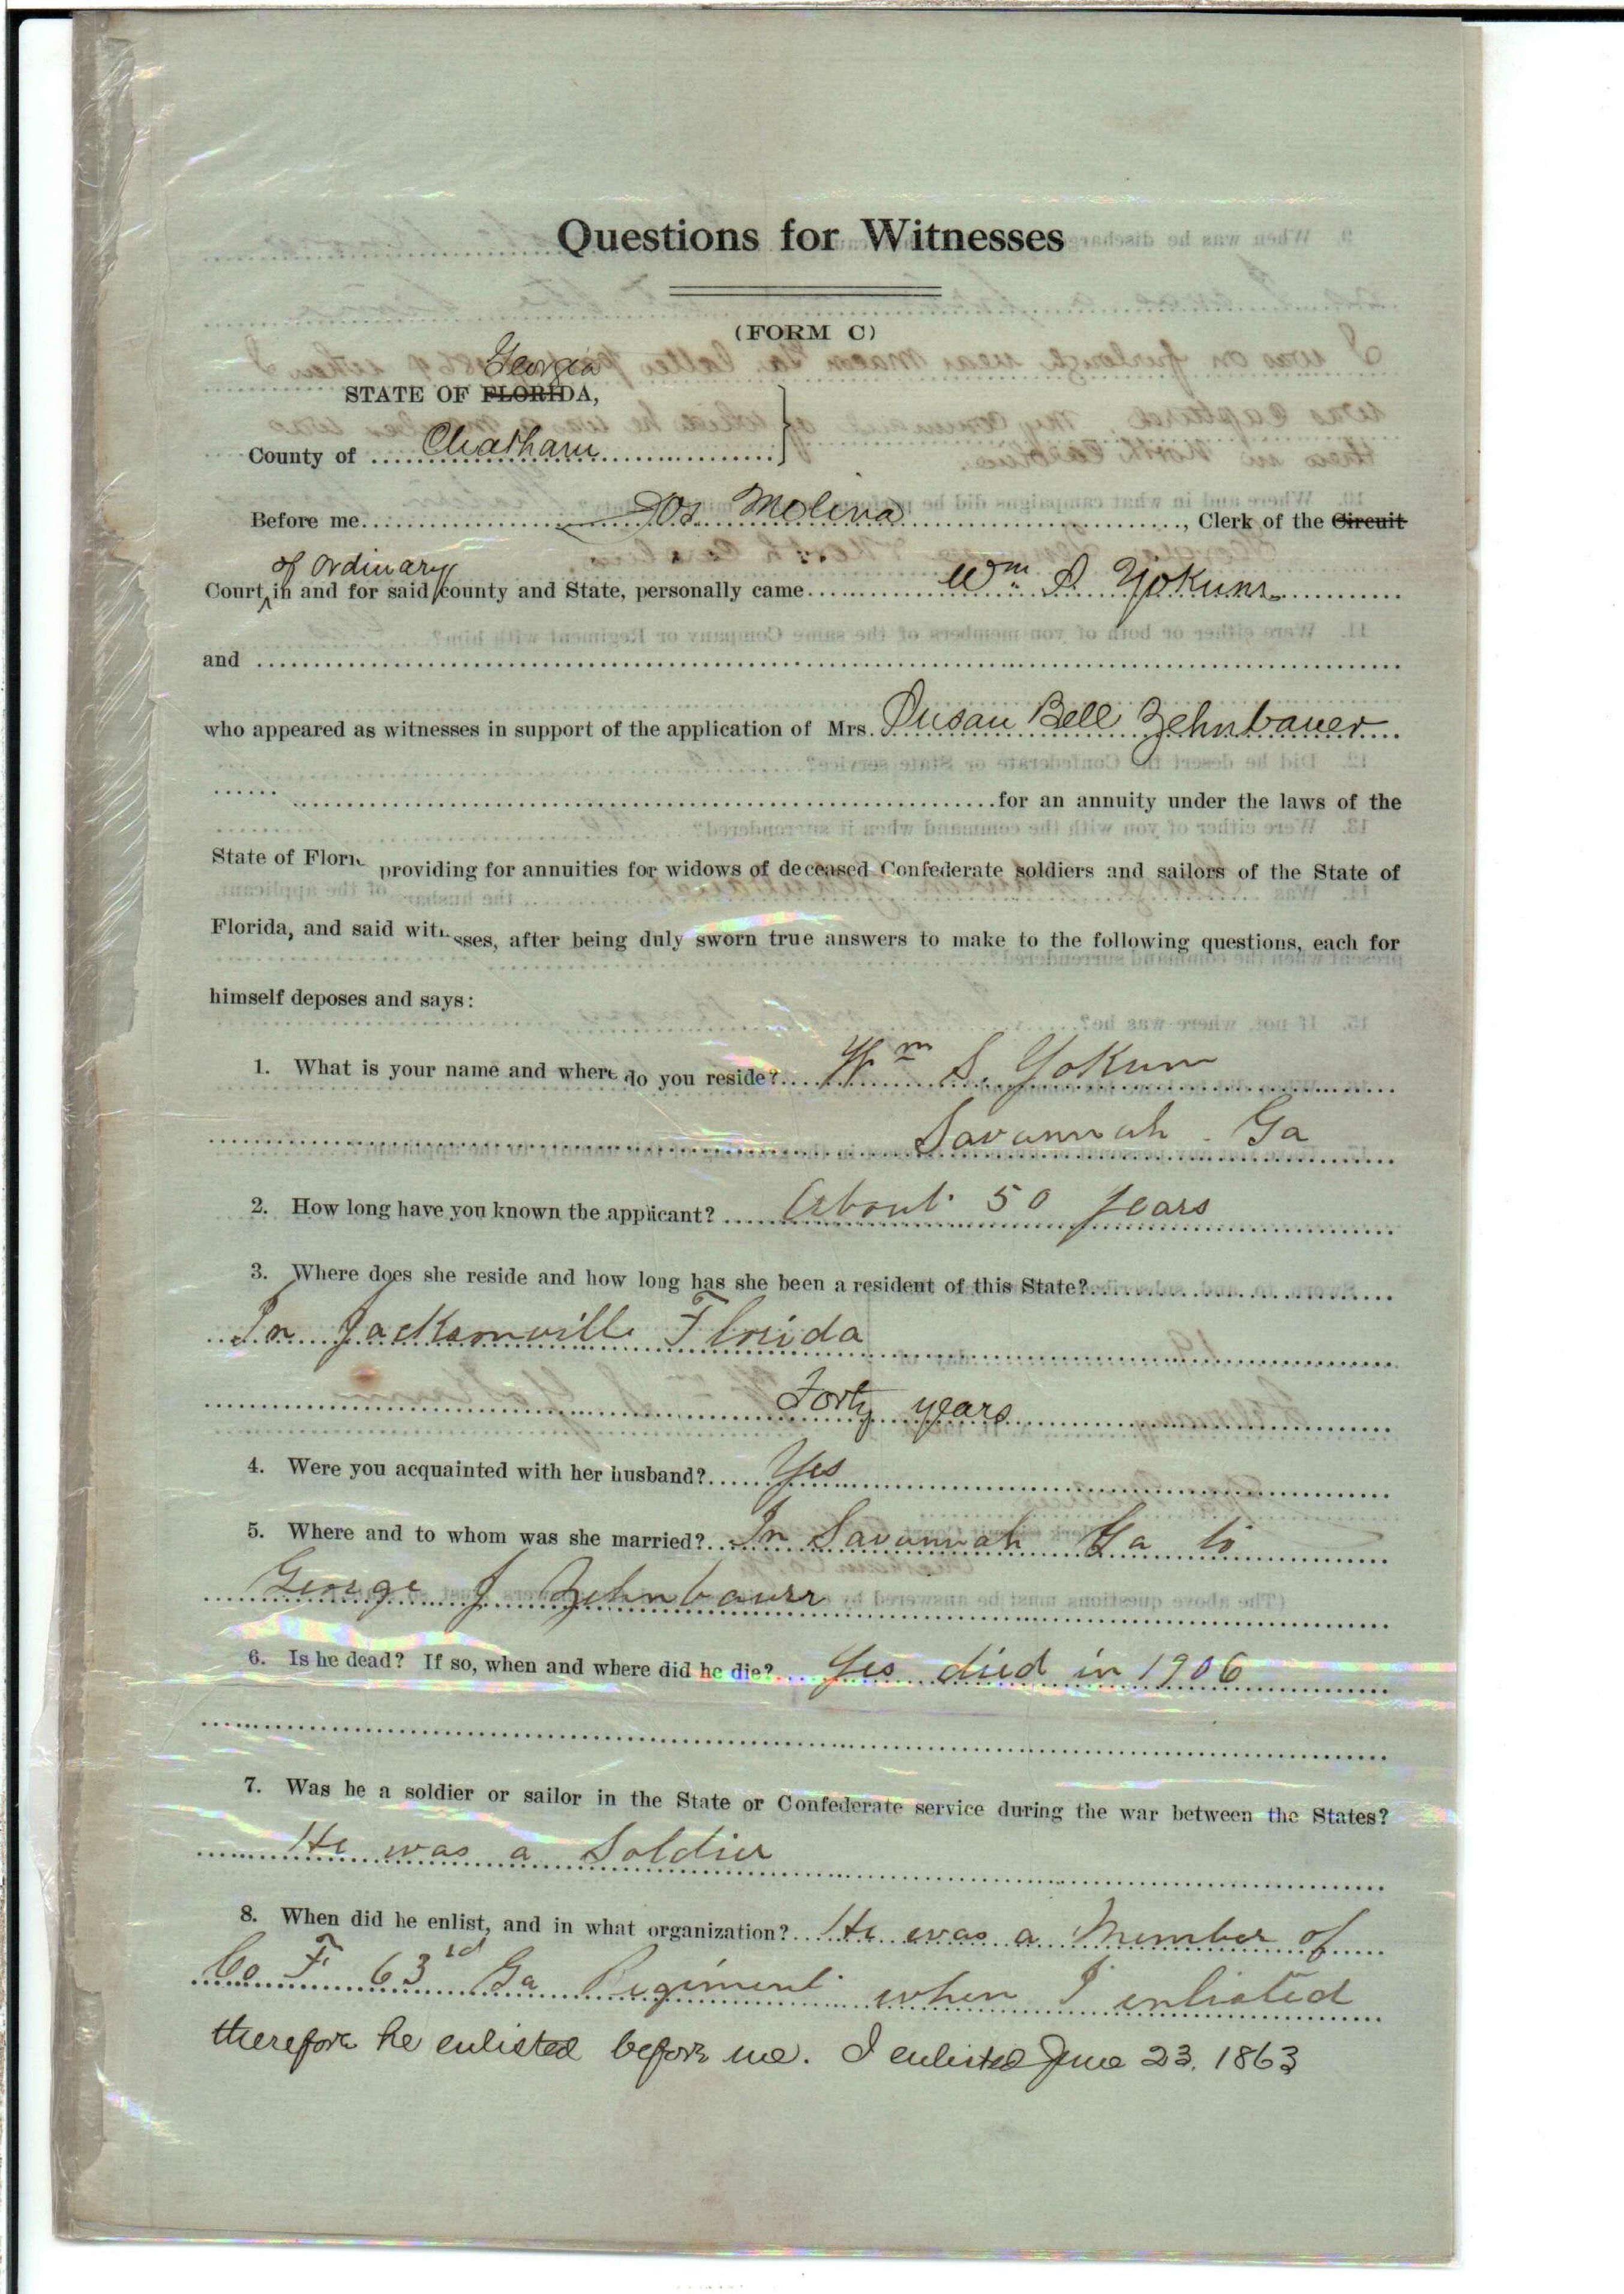 Questions for Witnesses
(FORM C)
Georgia
STATE OF FLORIDA,
County of Chatham
Before me Jos Molina, Clerk of the Circuit
of ordinary
Court in and for said county and State, personally came Wm S Yokum
and
who appeared as witnesses in support of the application of Mrs. Susan Bell Zehnbauer
for an annuity under the laws of the
State of Flori providing for annuities for widows of deceased Confederate soldiers and sailors of the State of
Florida, and said witnesses, after being duly sworn true answers to make to the following questions, each for
himself deposes and says:
1. What is your name and where do you reside? Wm S. Yokum
Savannah Ga
2. How long have you known the applicant? About 50 years
3. Where does she reside and how long has she been a resident of this State?
In Jacksonville Florida
Forty years
4. Were you acquainted with her husband? Yes
5. Where and to whom was she married? In Savannah Ga to
George J Zehnbauer
6. Is he dead? If so, when and where did he die? Yes died in 1906
7. Was he a soldier or sailor in the State or Confederate service during the war between the States?
He was a Soldier
8. When did he enlist, and in what organization? He was a Member of
Co F 63rd Ga Regiment when I enlisted
therefore he enlisted before me. I enlisted June 23, 1863